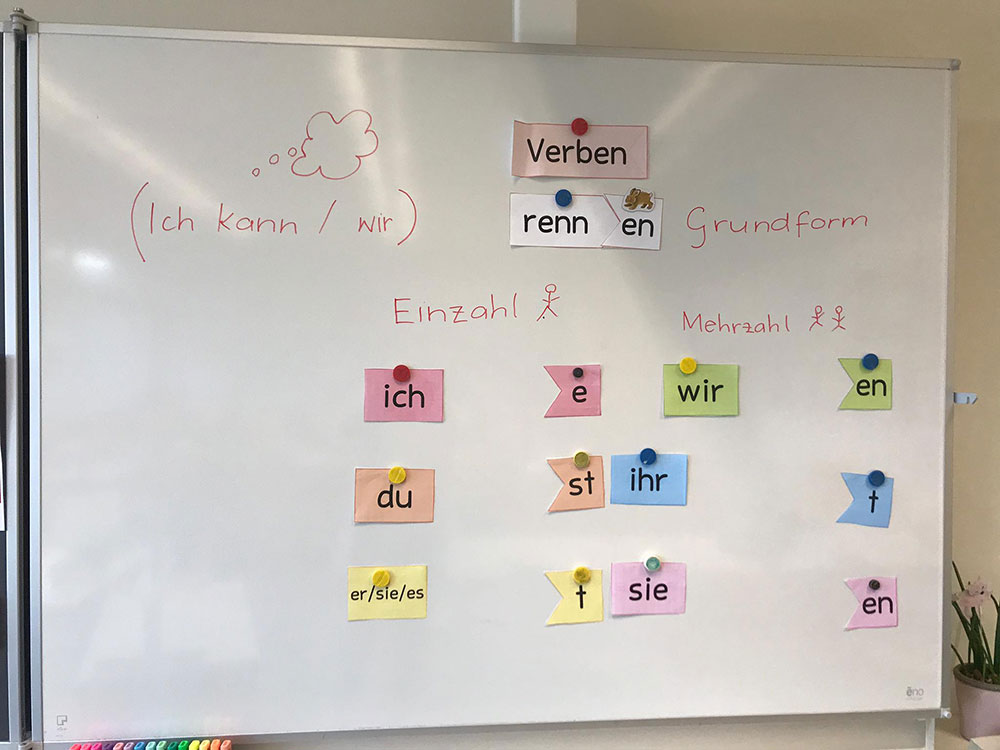 Verben
(Ich kann / wir) renn en Grundform
Einzahl Mehrzahl
ich e wir en
du st ihr t
er/sie/es t sie en
ēno